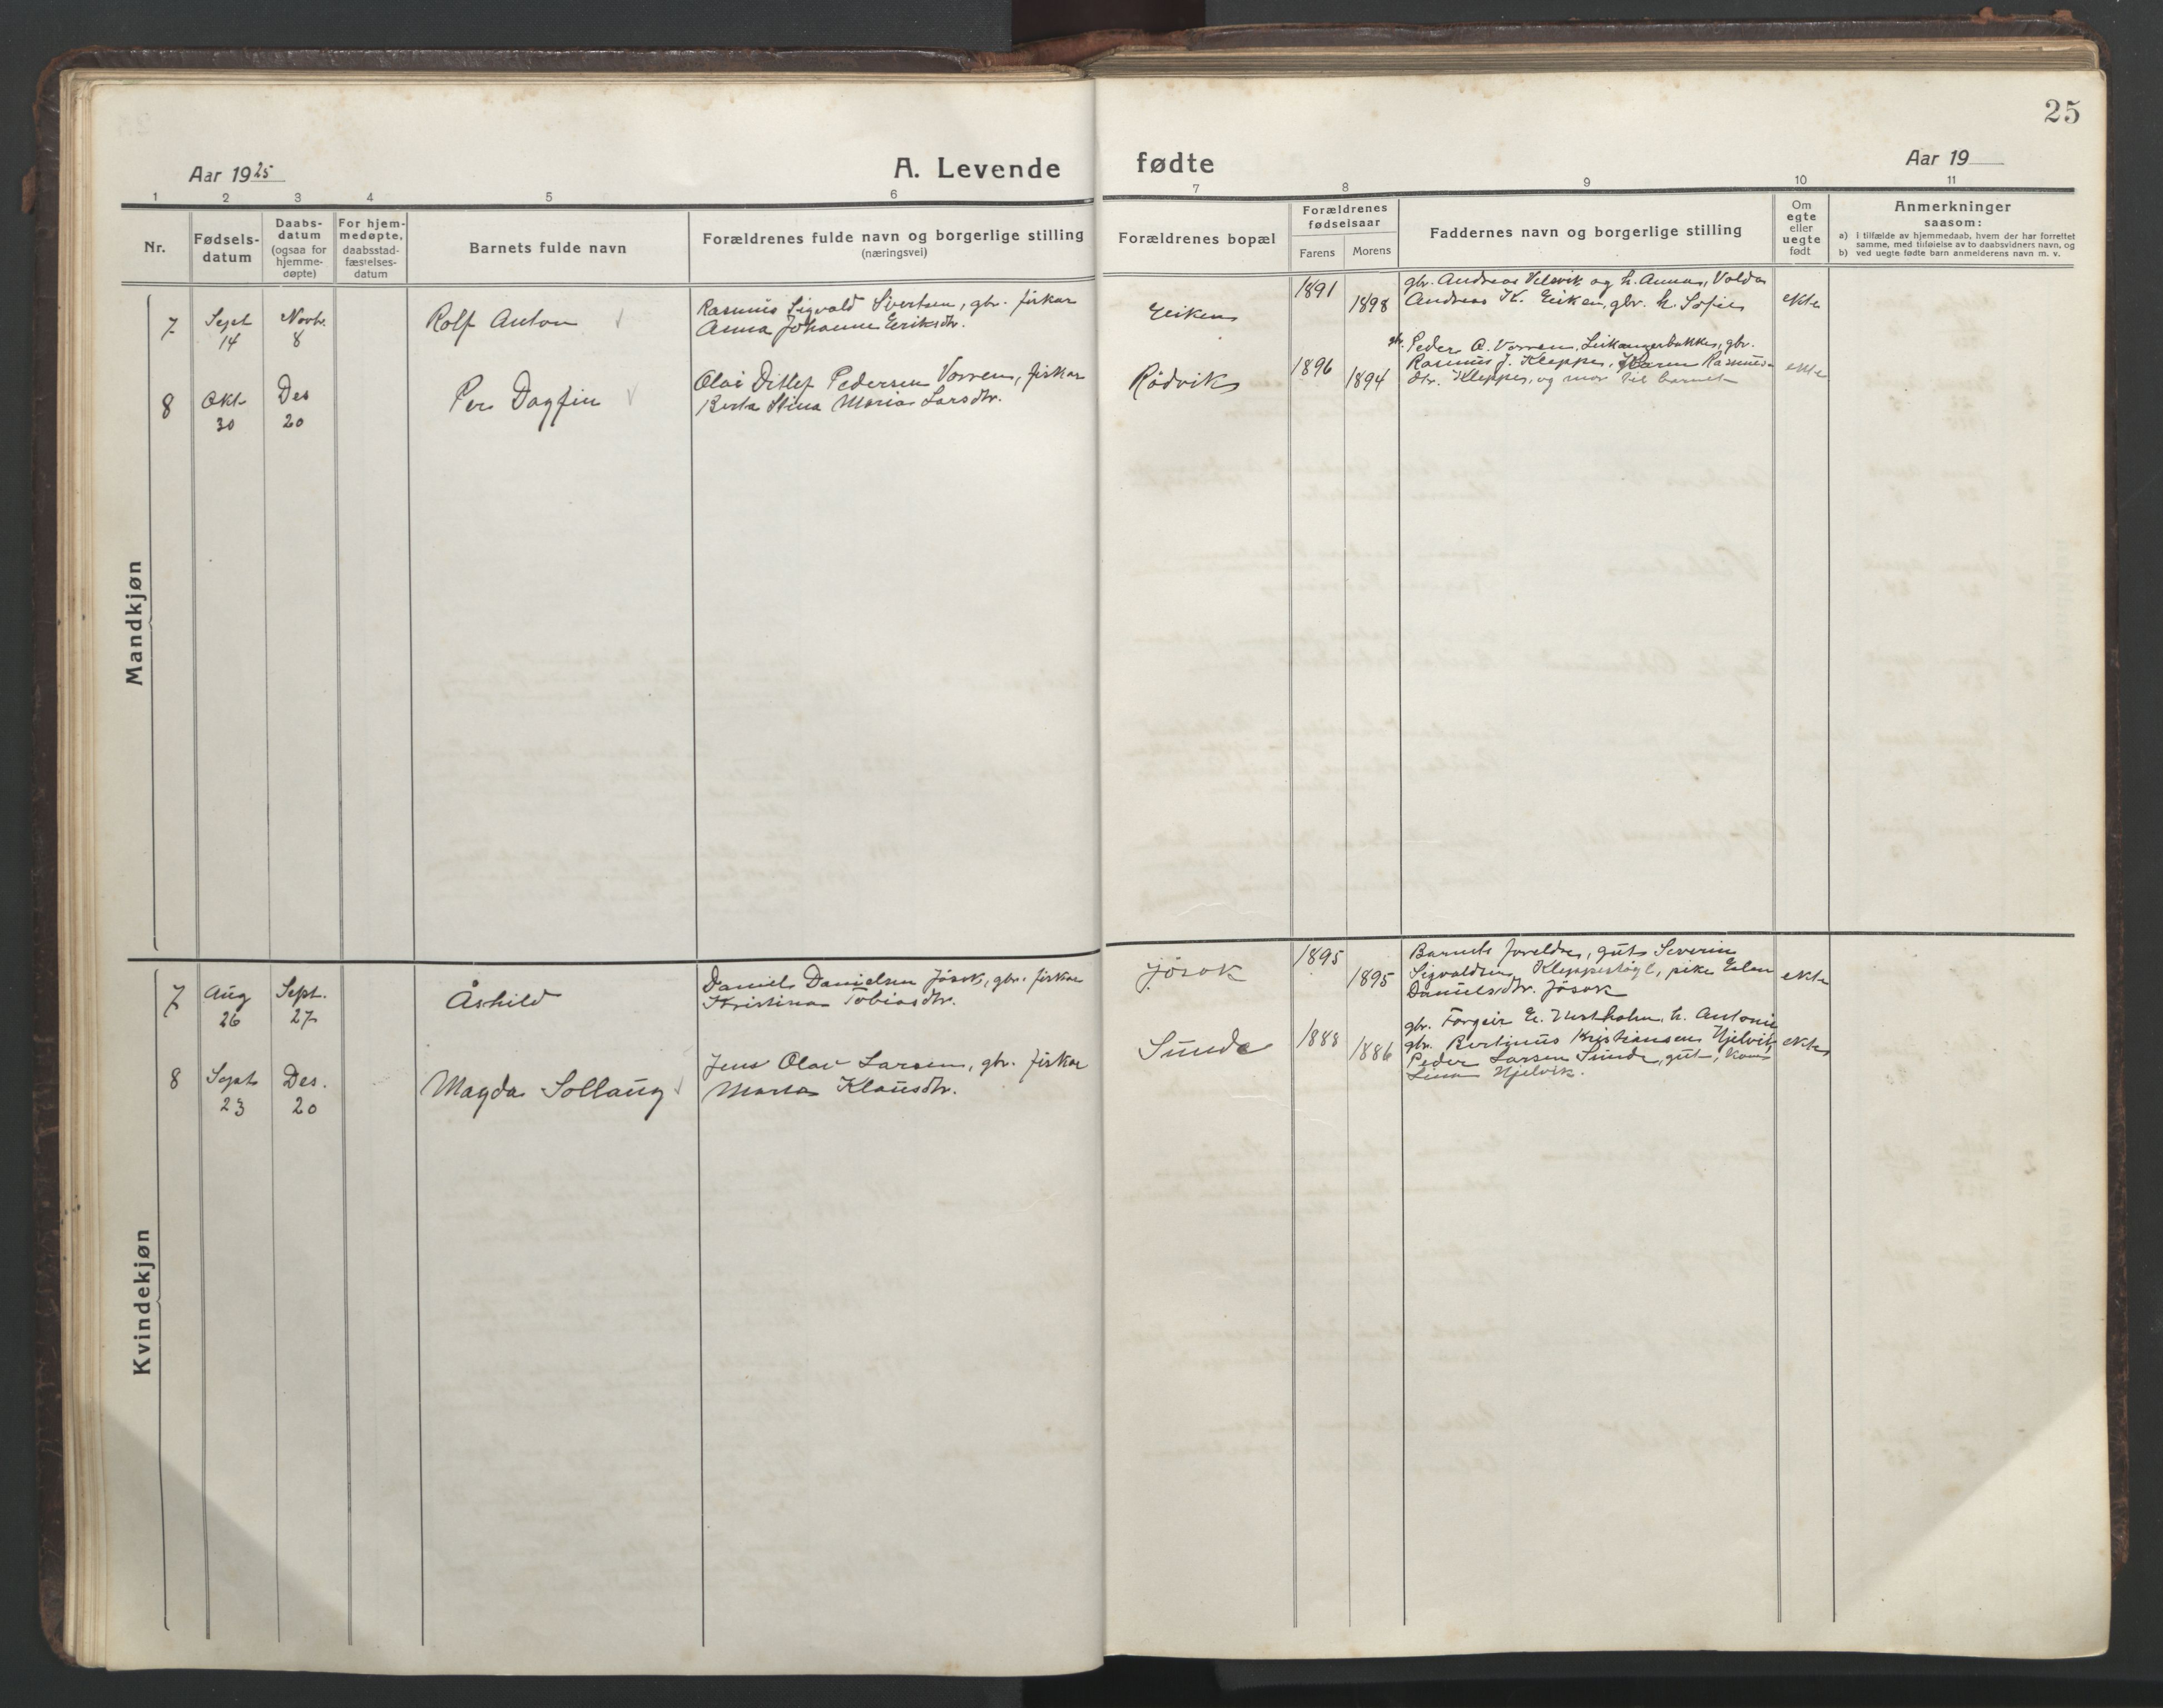 25
Aar 1925
A. Levende
fødte
Aar 19
1 2 3 4 5 6 7 8 9 10 11
Nr.
Fødsels-
datum
Daabs-
datum
(ogsaa for
hjemme-
døpte)
For hjem-
medøpte,
daabsstad-
fæstelses-
datum
Barnets fulde navn
Forældrenes fulde navn og borgerlige stilling
(næringsvei)
Forældrenes bopæl
Forældrenes
fødselsaar
Farens
Morens
Faddernes navn og borgerlige stilling
Om
egte
eller
uegte
født
Anmerkninger
saasom:
a) I tilfælde av hjemmedaab, hvem der har forrettet
samme, med tilføielse av to daabsvidners navn, og
b) ved uegte fødte barn anmelderens navn m. v.
Mandkjøn
7
Sept
14
Novbr.
8
Rolf Anton
Rasmus Sigvald Sivertsen, gbr. fiskar
Anna Johanne Eriksdtr.
Eiken
1891
1898
gbr. Andreas Velsvik og h. Anna, Volda
Andreas K. Eiken, gbr. h. Sofie
ekte
8
Okt
30
Des
20
Per Dagfin
Olai Ditlef Pedersen Vorren, fiskar
Berta Stina Maria Larsdtr.
Rödvik
1896
1894
gbr. Peder A. Vorren, Leikangerbakke, gbr.
Rasmus J. Kleppe, Karen Rasmus-
dtr. Kleppe, og mor til barnet
ekte
Kvindekjøn
7
Aug
26
Sept.
27
Åshild
Daniel Danielsen Jösok, gbr. fiskar
Kristina Tobiasdtr.
Jösok
1895
1895
Barnets foreldre, gut Severin
Sigvaldsen Kleppestögl, pike Elen
Danielsdtr. Jösok
ekte
8
Sept
23
Des.
20
Magda Sollaug
Jens Olav Larsen, gbr. fiskar
Marta Klausdtr.
Sunde
1888
1886
gbr. Torgeir E. h. Antonie
gbr. Bertinus Kristiansen Hjelvik,
Peder Larsen Sunde, gut,
Lina Hjelvik.
ekte